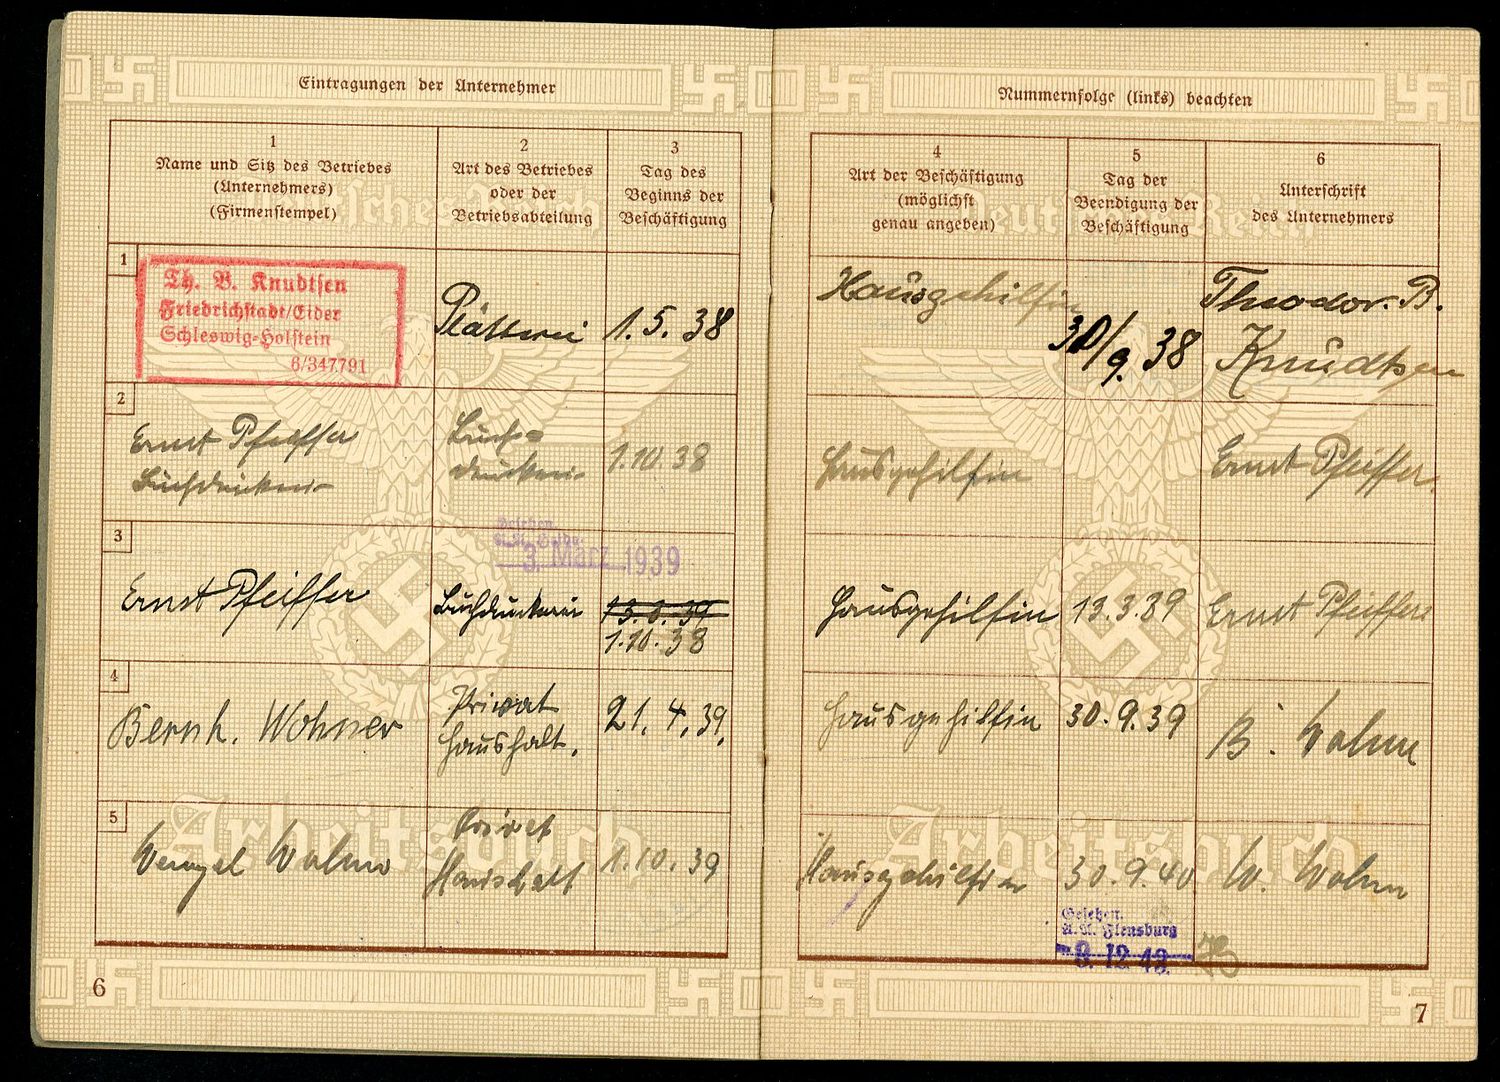 Eintragungen der Unternehmer
1
Name und Sitz des Betriebes
(Unternehmers)
(Firmenstempel)
2
Art des Betriebes
oder der
Betriebsabteilung
3
Tag des
Beginns der
Beschäftigung
1
Th. B. Knudtsen
Friedrichstadt/Eider
Schleswig-Holstein
6/347791
Plätterei
1.5.38
2
Ernst Pfeiffer
Buchdruckerei
Buch=
druckerei
1.10.38
3
Gesehen.
3. März 1939
Ernst Pfeiffer
Buchdruckerei
1.10.38
4
Bernh. Wohner
Privat
haushalt.
21.4.39.
5
Privat
Haushalt
1.10.39
6
Deutsches Reich
Arbeitsbuch
Nummernfolge (links) beachten
4
Art der Beschäftigung
(möglichst
genau angeben)
5
Tag der
Beendigung der
Beschäftigung
6
Unterschrift
des Unternehmers
Hausgehilfin
30/9.38
Theodor. B.
Knudtsen
Hausgehilfin
Ernst Pfeiffer.
Hausgehilfin
13.3.39
Ernst Pfeiffer
Hausgehilfin
30.9.39
B.
Hausgehilfin
30.9.40
W.
Gesehen.
A.A. Flensburg
7
Deutsches Reich
Arbeitsbuch